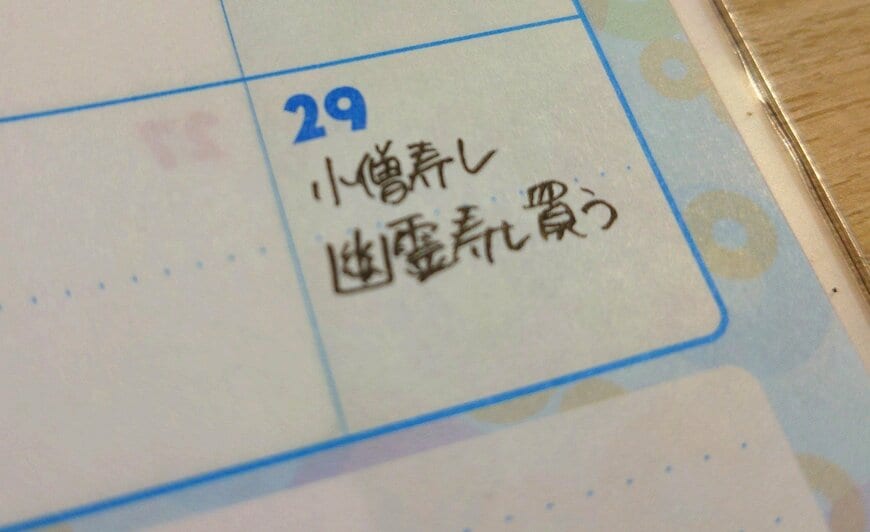 29
小僧寿し
幽霊寿し買う
27